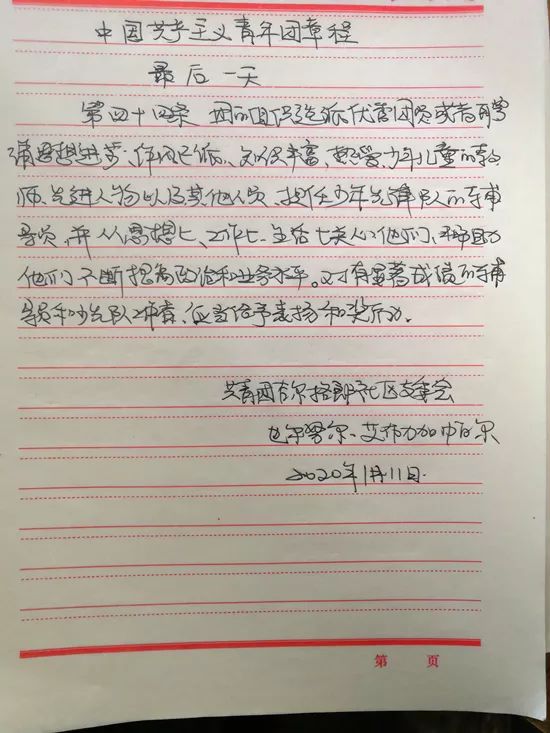 中国共产主义青年团章程
最后一天
第四十四条 团的组织选派优秀团员或者聘
请思想进步、作风正派、知识丰富、热爱少年儿童的教
师、先进人物以及其他人员，担任少年先锋队的辅
导员，并从思想上、工作上、生活上关心他们，帮助
他们不断提高政治和业务水平。对有显著成绩的辅
导员和少先队工作者，应当给予表扬和奖励。
共青团 格朗社区支委会
努尔·艾 力加 尔
2020年1月11日.
第 页